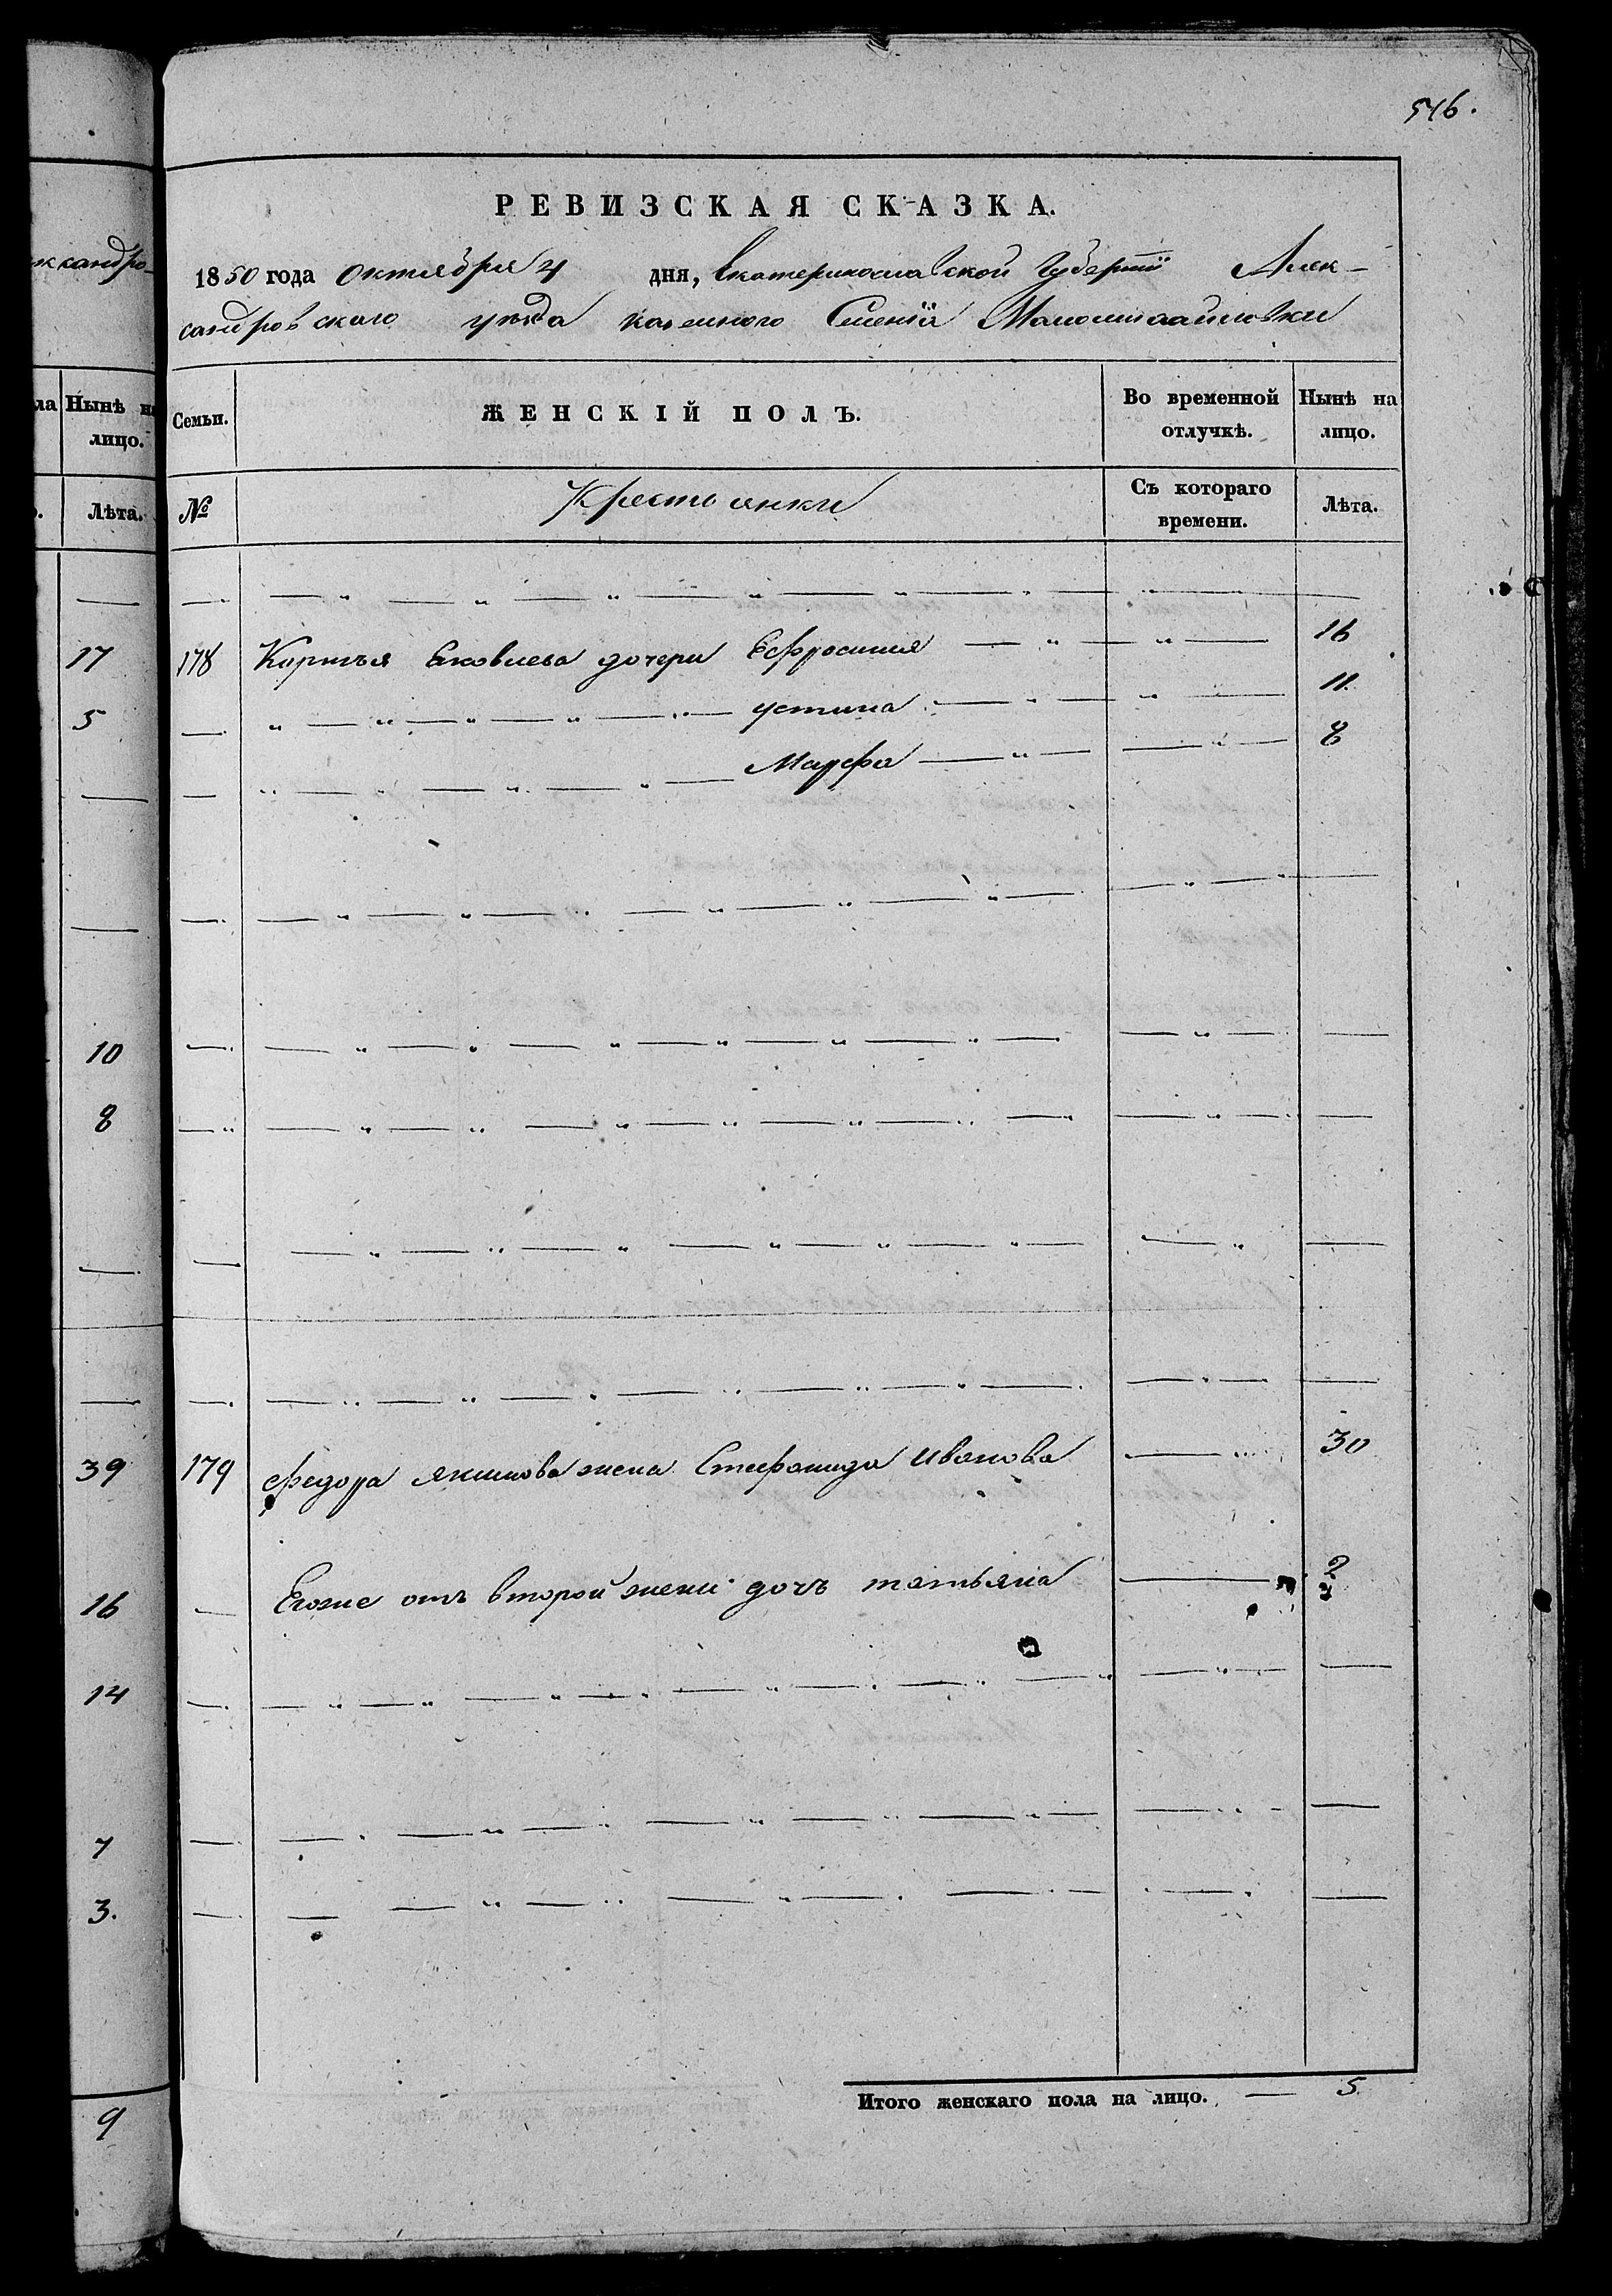 546.
РЕВИЗСКАЯ СКАЗКА.
1850 года октября 4 дня, Екатеринославской Губерніи Алек-
сандровскаго уѣзда казенного Селенія Маломихайловки
Семьи.
ЖЕНСКІЙ ПОЛЪ.
Во временной отлучкѣ.
Нынѣ на лицо.
№
Крестьянки
Съ котораго времени.
Лѣта.
178 Яковлева дочери Ефросиния 16
устина 11.
Марфа 8
179 Федора якимова жена Стефанида Иванова 30
Егоже отъ второй жени дочъ татьяна 2
Итого женскаго пола на лицо. — 5.
ксандро-
ла
Нынѣ на
лицо.
Лѣта.
17
5
10
8
39
16
14
7
3.
9